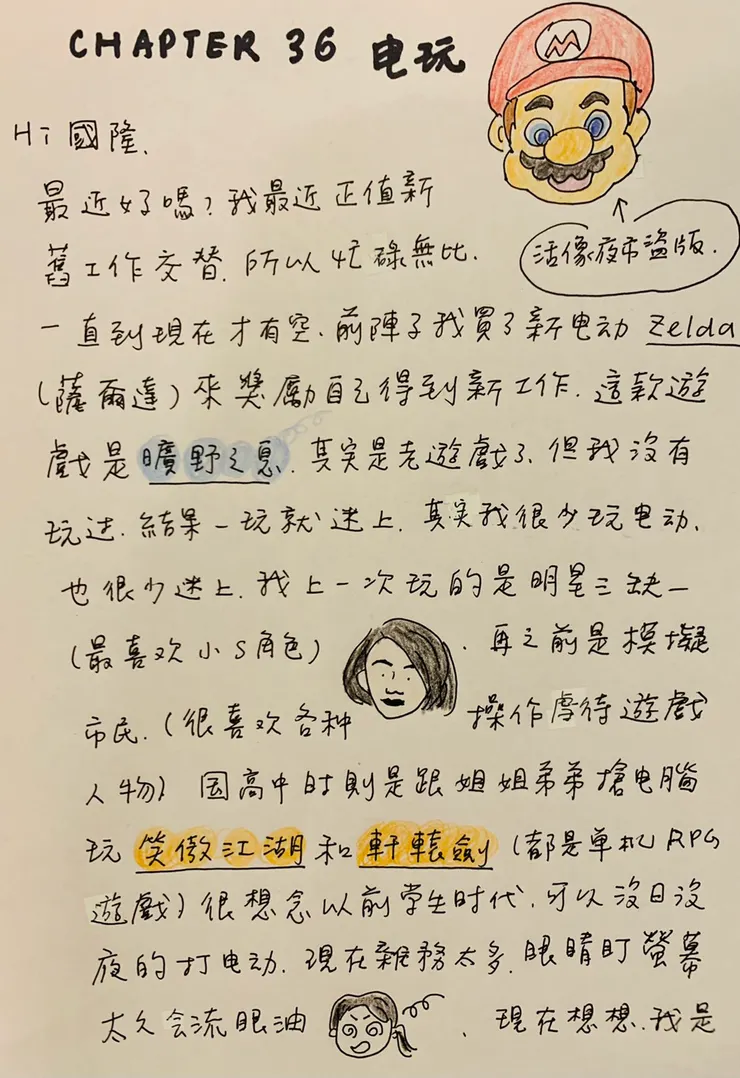 CHAPTER 36 电玩
Hi 國隆、
最近好嗎？我最近正值新
舊工作交替、所以忙碌無比、
活像夜市盜版．
一直到現在才有空、前陣子我買了新电动 Zelda
(薩爾達) 來獎勵自己得到新工作．這款遊
戲是曠野之息、其实是老遊戲了、但我沒有
玩过、結果一玩就迷上、其实我很少玩电动、
也很少迷上、我上一次玩的是明星三缺一
(最喜欢小S角色)、再之前是模擬
市民、(很喜欢各种操作虐待遊戲
人物) 国高中时則是跟姐姐弟弟搶电腦
玩笑傲江湖和軒轅劍 (都是单机RPG
遊戲) 很想念以前学生时代、可以沒日沒
夜的打电动、現在雜務太多、眼睛盯螢幕
太久会流眼油、現在想想、我是